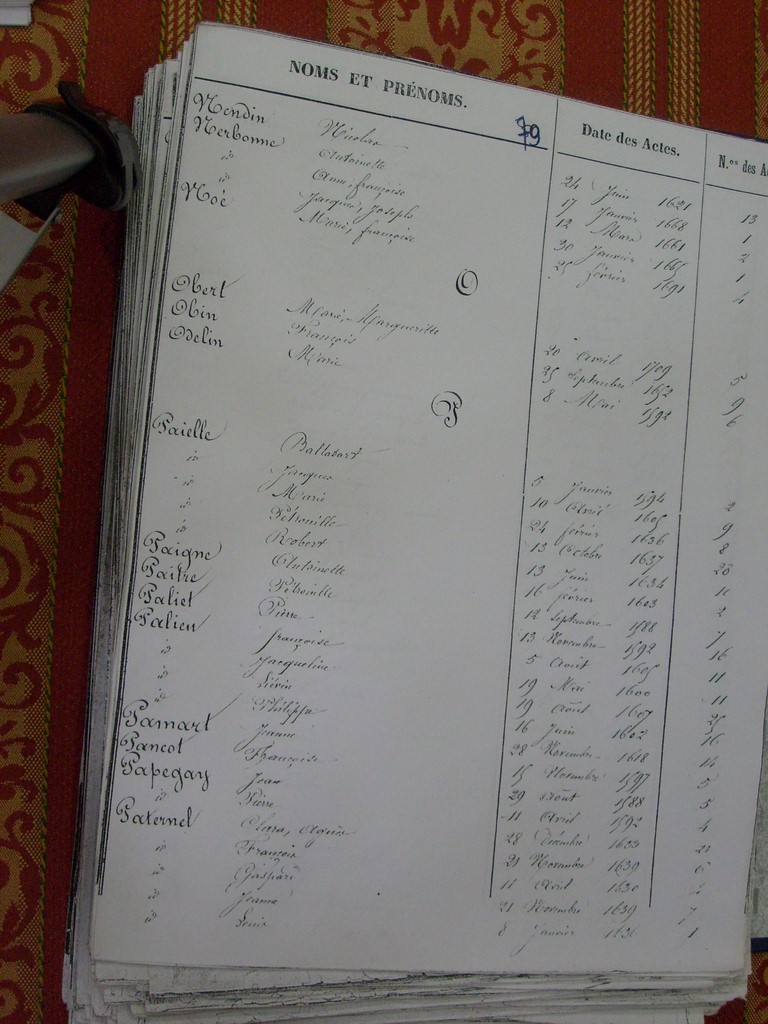 NOMS ET PRÉNOMS. 79 Date des Actes. N.os des
Nendin Nicolas 24 Juin 1621 13
Nerbonne Antoinette 17 Janvier 1668 1
id Anne françoise 12 Mars 1661 2
Noé Jacques, Joseph 30 Janvier 1665 1
Marie, françoise 25 février 1691 4
O
Obert Marie-Marguerite 20 Avril 1709 5
Obin François 25 Septembre 1652 9
Odelin Marie 8 Mai 1592 6
P
Paielle Baltasart 5 Janvier 1594 2
id Jacques 10 1605 9
id Marie 24 février 1636 8
id Pétronille 13 Octobre 1637 28
id Robert 13 Juin 1634
Paigne Antoinette 16 février 1603 2
Paitre Pétronille 12 Septembre 1588 7
Paliet Pierre 13 Novembre 1592 16
Palieu françoise 5 Août 1605 11
id Jacqueline 19 Mai 1600 11
id Liévin 19 Août 1607 25
id Philippe 16 Juin 1602 16
Pamart Jeanne 28 Novembre 1618 14
Pancot Françoise 15 Novembre 1597 5
Papegay Jean 29 Août 1588 5
id Pierre 11 Avril 1592 4
Paternel Clara, Agnès 28 Décembre 1633 21
id François 21 Novembre 1639 6
id Gaspard 11 Avril 1630
id Jeanne 21 Novembre 1639 7
id Louis 8 Janvier 1636 1